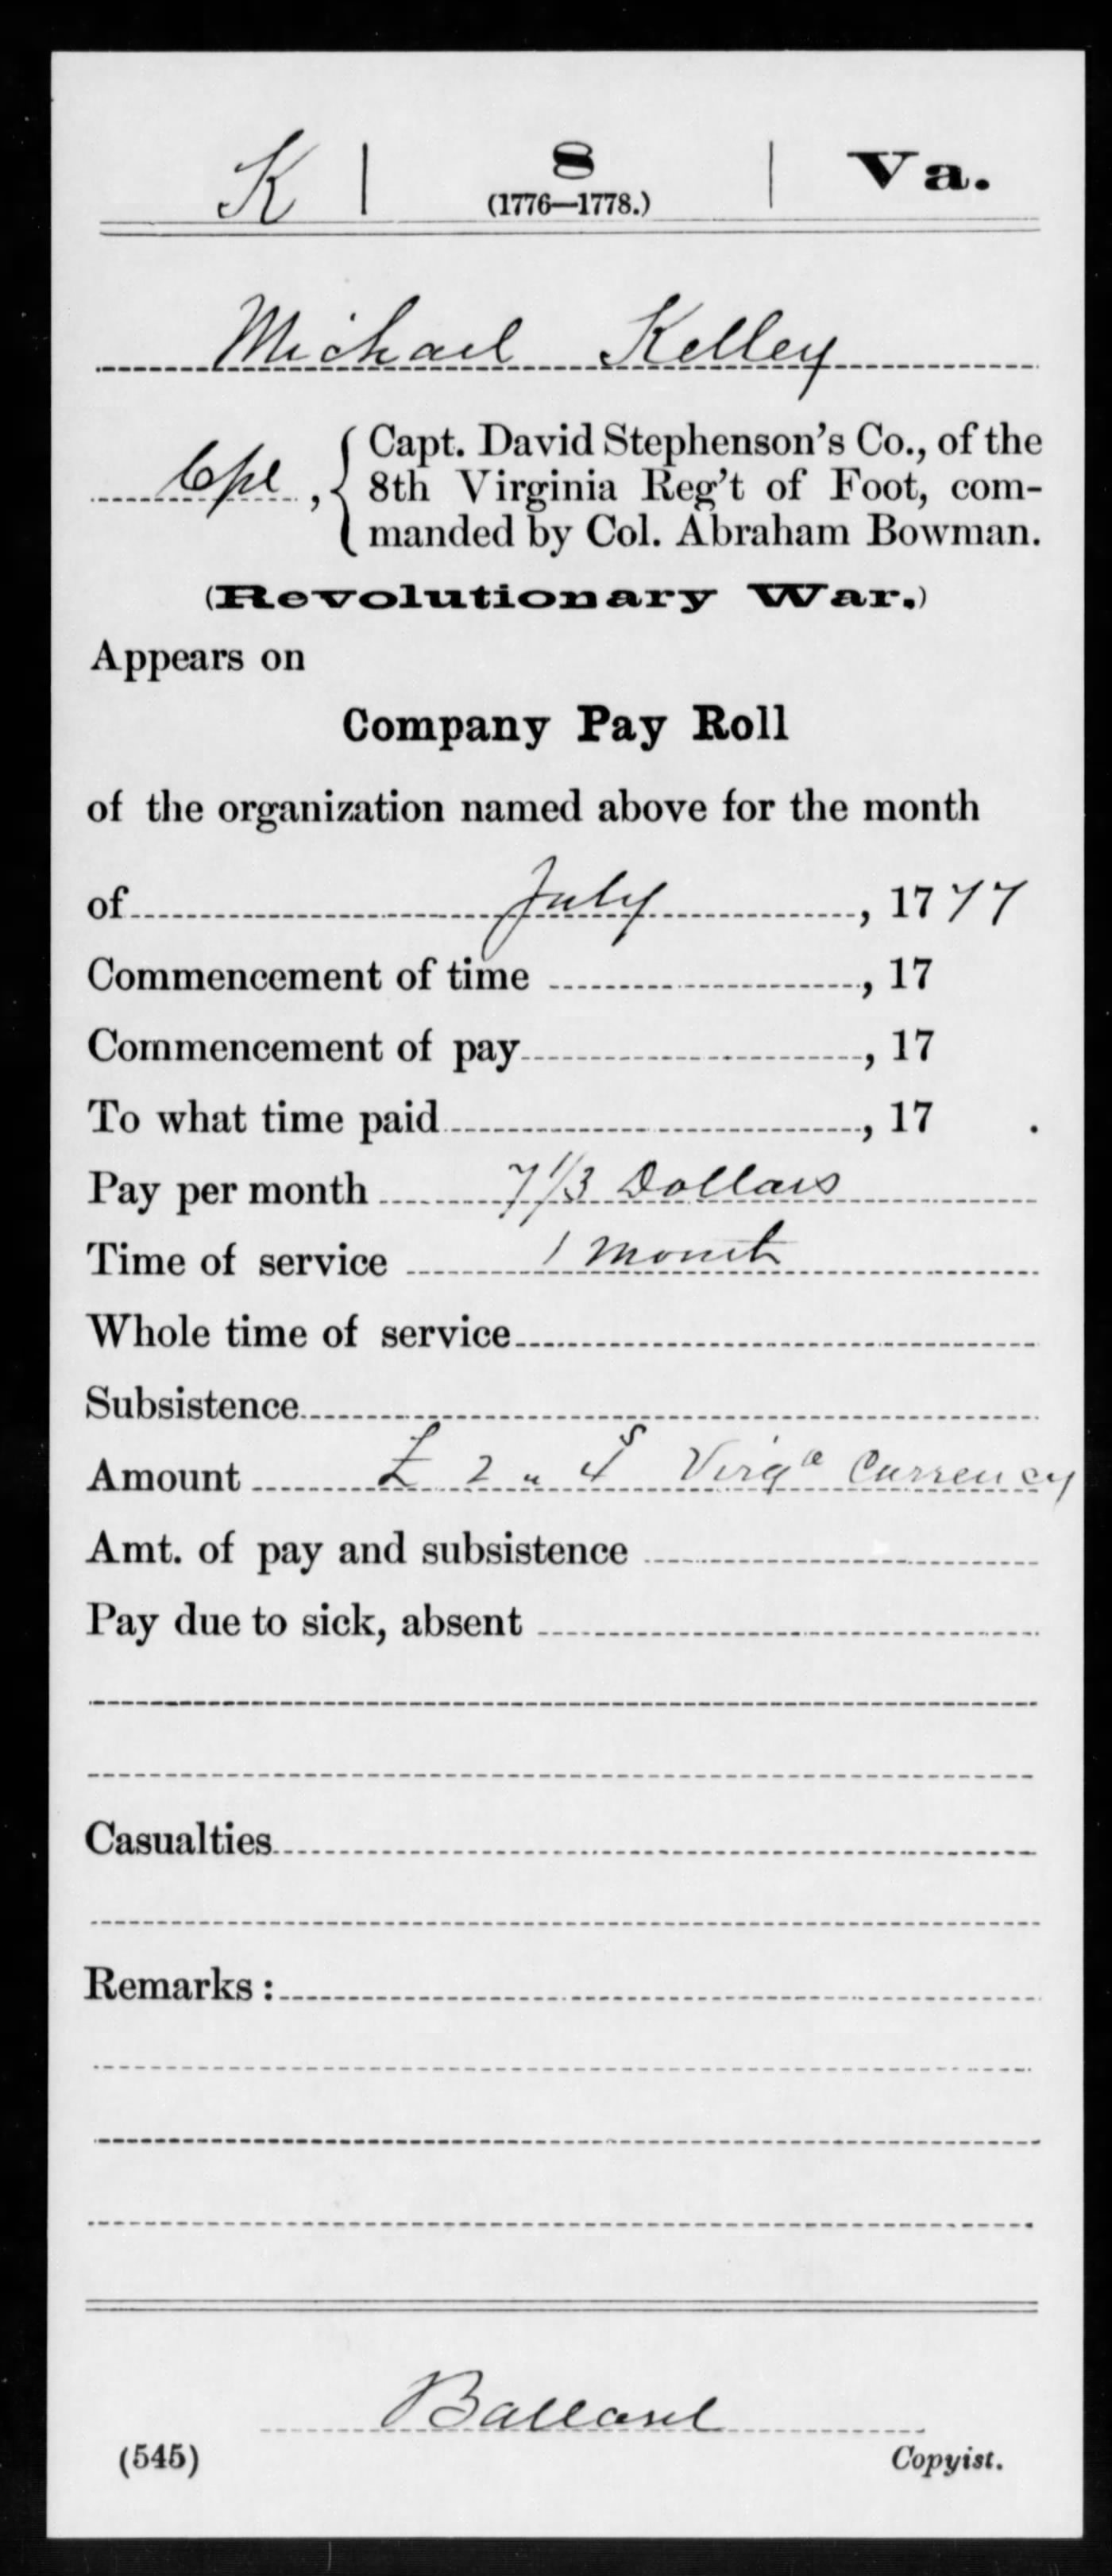 K | 8 | Va.
(1776—1778.)
Michael Kelley
Cpl, { Capt. David Stephenson's Co., of the
8th Virginia Reg't of Foot, com-
manded by Col. Abraham Bowman.
(Revolutionary War.)
Appears on
Company Pay Roll
of the organization named above for the month
of July, 1777
Commencement of time , 17
Commencement of pay , 17
To what time paid , 17 .
Pay per month 7 1/3 Dollars
Time of service 1 month
Whole time of service
Subsistence
Amount £ 2 " 4 s Virga Currency
Amt. of pay and subsistence
Pay due to sick, absent
Casualties
Remarks :
Ballard
(545) Copyist.